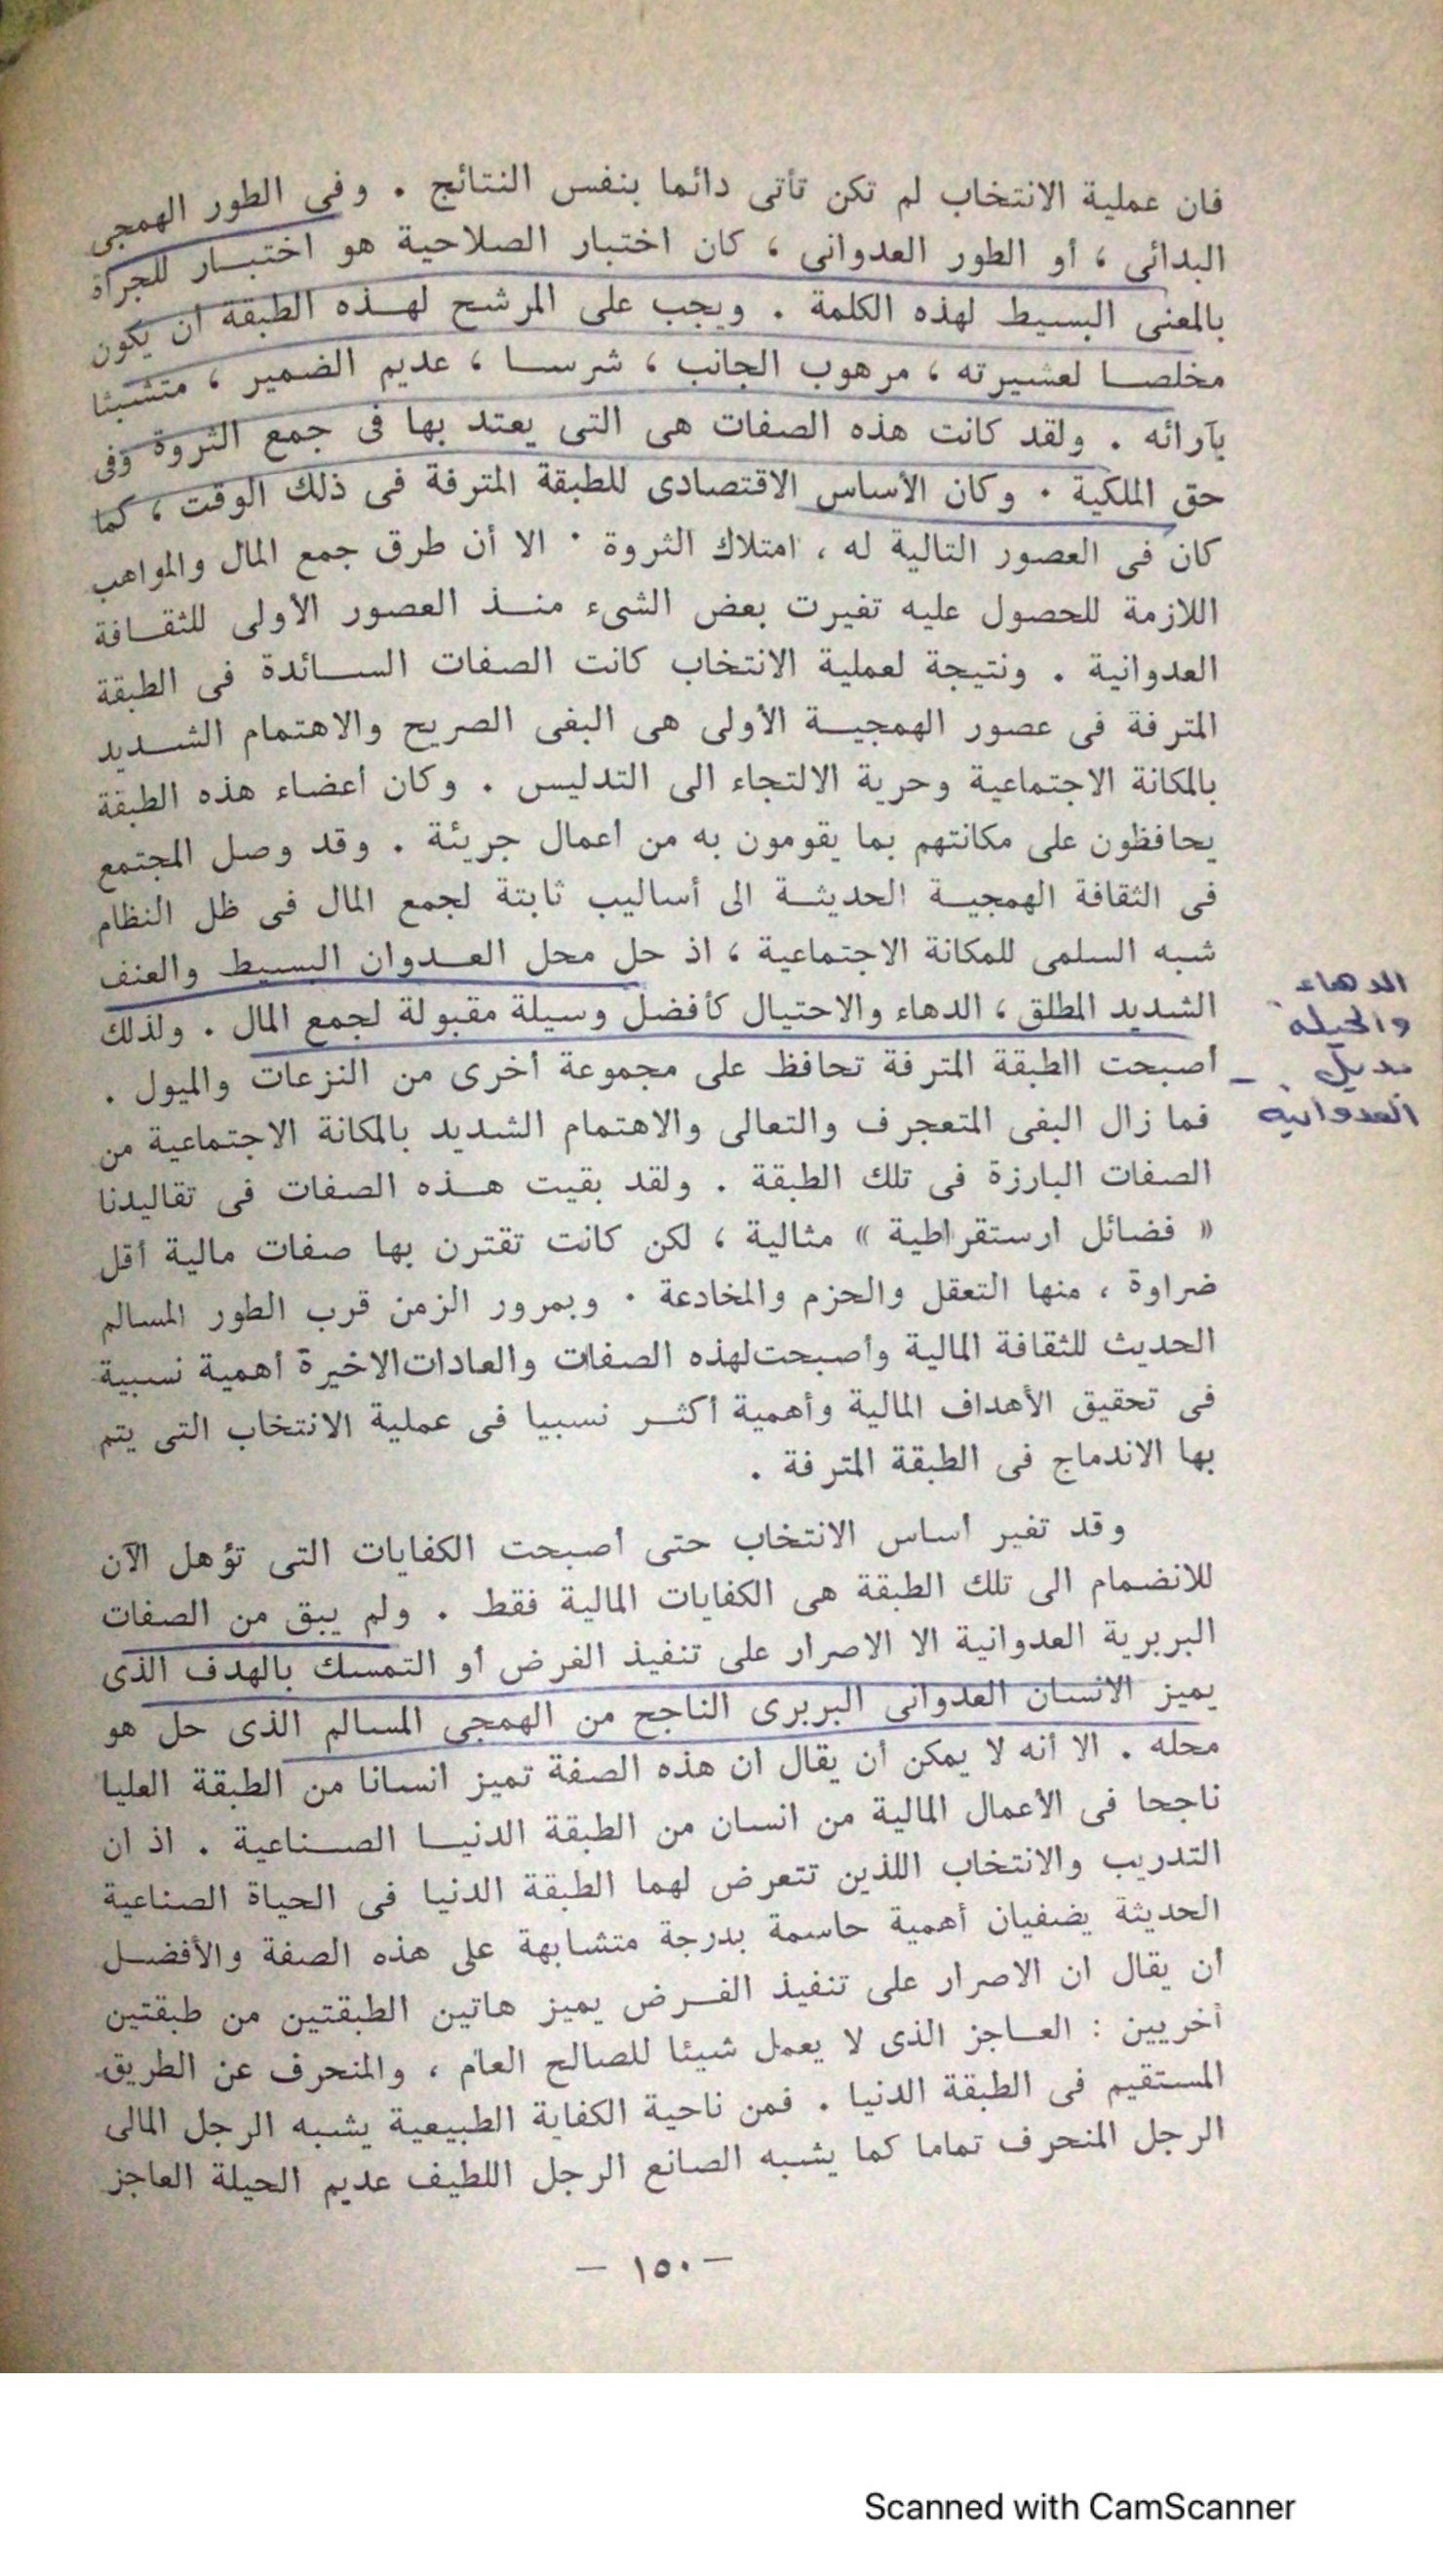 فان عملية الانتخاب لم تكن تأتى دائما بنفس النتائج . وفى الطور الهمجى
البدائى ، أو الطور العدوانى ، كان اختبار الصلاحية هو اختبــار للجرأة
بالمعنى البسيط لهذه الكلمة . ويجب على المرشح لهــذه الطبقة أن يكون
مخلصــا لعشيرته ، مرهوب الجانب ، شرســا ، عديم الضمير ، متشبثا
بآرائه . ولقد كانت هذه الصفات هى التى يعتد بها فى جمع الثروة وفى
حق الملكية . وكان الأساس الاقتصادى للطبقة المترفة فى ذلك الوقت ، كما
كان فى العصور التالية له ، امتلاك الثروة . الا أن طرق جمع المال والمواهب
اللازمة للحصول عليه تغيرت بعض الشىء منــذ العصور الأولى للثقــافة
العدوانية . ونتيجة لعملية الانتخاب كانت الصفات الســائدة فى الطبقة
المترفة فى عصور الهمجيــة الأولى هى البغى الصريح والاهتمام الشــديد
بالمكانة الاجتماعية وحرية الالتجاء الى التدليس . وكان أعضاء هذه الطبقة
يحافظون على مكانتهم بما يقومون به من أعمال جريئة . وقد وصل المجتمع
فى الثقافة الهمجيــة الحديثــة الى أساليب ثابتة لجمع المال فى ظل النظام
شبه السلمى للمكانة الاجتماعية ، اذ حل محل العــدوان البسيط والعنف
الشديد المطلق ، الدهاء والاحتيال كأفضل وسيلة مقبولة لجمع المال . ولذلك
أصبحت الطبقة المترفة تحافظ على مجموعة أخرى من النزعات والميول .
فما زال البغى المتعجرف والتعالى والاهتمام الشديد بالمكانة الاجتماعية من
الصفات البارزة فى تلك الطبقة . ولقد بقيت هــذه الصفات فى تقاليدنا
« فضائل ارستقراطية » مثالية ، لكن كانت تقترن بها صفات مالية أقل
ضراوة ، منها التعقل والحزم والمخادعة . وبمرور الزمن قرب الطور المسالم
الحديث للثقافة المالية وأصبحت لهذه الصفات والعادات الاخيرة أهمية نسبية
فى تحقيق الأهداف المالية وأهمية أكثــر نسبيا فى عملية الانتخاب التى يتم
بها الاندماج فى الطبقة المترفة .
وقد تغير أساس الانتخاب حتى أصبحت الكفايات التى تؤهل الآن
للانضمام الى تلك الطبقة هى الكفايات المالية فقط . ولم يبق من الصفات
البربرية العدوانية الا الاصرار على تنفيذ الغرض أو التمسك بالهدف الذى
يميز الانسان العدوانى البربرى الناجح من الهمجى المسالم الذى حل هو
محله . الا أنه لا يمكن أن يقال ان هذه الصفة تميز انسانا من الطبقة العليا
ناجحا فى الأعمال المالية من انسان من الطبقة الدنيــا الصــناعية . اذ ان
التدريب والانتخاب اللذين تتعرض لهما الطبقة الدنيا فى الحياة الصناعية
الحديثة يضفيان أهمية حاسمة بدرجة متشابهة على هذه الصفة والأفضــل
أن يقال ان الاصرار على تنفيذ الغــرض يميز هاتين الطبقتين من طبقتين
أخريين : العــاجز الذى لا يعمل شيئا للصالح العام ، والمنحرف عن الطريق
المستقيم فى الطبقة الدنيا . فمن ناحية الكفاية الطبيعية يشبه الرجل المالى
الرجل المنحرف تماما كما يشبه الصانع الرجل اللطيف عديم الحيلة العاجز
الدهاء
والحيلة
بديل
العدوانية
— ١٥٠ —
Scanned with CamScanner